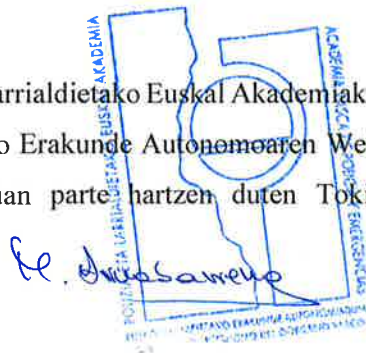 arrialdietako Euskal Akademiak
o Erakunde Autonomoaren We
uan parte hartzen duten Toki
POLIZIA ETA LARRIALDIETAKO EUSKAL AKADEMIA
ACADEMIA VASCA DE POLICÍA Y EMERGENCIAS